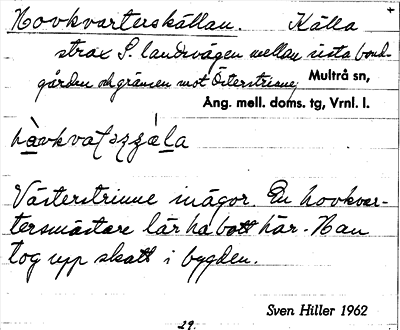 Hovkvarterskällan. Källa
strax S. landsvägen mellan sista bond-
gården och gränsen mot Österstrinne,
Multrå sn,
Ång. mell. doms. tg, Vrnl. l.
Västerstrinne inägor. En hovkvar-
termästare lär ha bott här. Han
tog upp skatt i bygden.
Sven Hiller 1962
29.